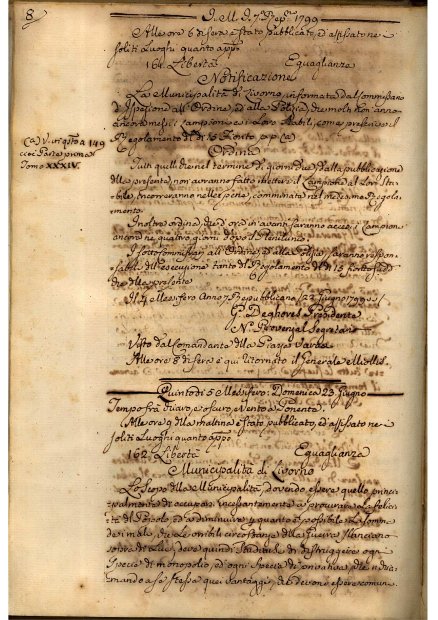 8
1799
Alle ore 6 di sera è stato pubblicato, ed affissato ne
soliti Luoghi quanto app.
161. Libertà Eguaglianza
Notificazione
La Municipalità di Livorno informata dal Commissario
d'Ispezione all'Ordine, ed alla Polizia, che molti non anno
ancora messi i Lampioni ai Loro Stabili, come prescrive il
Regolamento de' 15
Ordina
Tutti quelli che nel termine di giorni due dalla pubblicazione
della presente, non avranno fatto rimettere il Lampione ai Loro Sta-
bili, incorreranno nelle pene, comminate nel medesimo Regola-
mento.
Inoltre ordina, che d'ora in avanti saranno accesi i Lampioni
ancora ne quattro giorni dopo il Plenilunio.
I sottocommissari all'Ordine, ed alla Polizia saranno respon-
sabili dell'esecuzione tanto del Regolamento de' 15
che della presente
Il 4 Messifero Anno 7 Repubblicano (22 Giugno 1799)
G. Deghores Presidente
N. Provenzal Segretario
Visto dal Comandante della Piazza
Alle ore 8 di sera è qui ritornato il Generale Miollis.
(a) V. a 149
Parte prima
Tomo XXXIV.
Quintodì 5 Messifero: Domenica 23 Giugno
Tempo fra chiaro, e oscuro, e Vento a Ponente
Alle ore 9 della mattina è stato pubblicato, ed affissato ne
soliti Luoghi quanto app.
162. Libertà Eguaglianza
Municipalità di Livorno
Lo Scopo della Municipalità, dovendo essere quello princi-
palmente di occuparsi incessantemente a procurare la felici-
tà del Popolo, ed a diminuire per quanto è possibile la somma
de i mali, che le orribili circostanze della Guerra
sopra di esso, deve quindi di distruggere ogni
specie di monopolio, ed ogni specie di privativa, che richia-
mando a se stessa quei vantaggi, che devono essere comuni